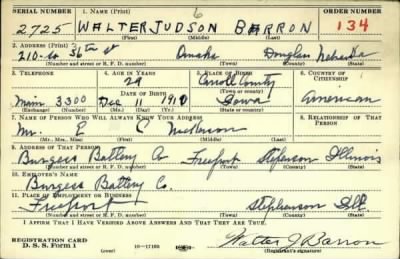 SERIAL NUMBER 1. NAME (Print) 6 ORDER NUMBER
2725 WALTER JUDSON BARRON 134
(First) (Middle) (Last)
2. ADDRESS (Print)
210-So 36th St Omaha Douglas Nebraska
(Number and street or R. F. D. number) (Town) (County) (State)
3. TELEPHONE 4. AGE IN YEARS 5. PLACE OF BIRTH 6. COUNTRY OF CITIZENSHIP
29 Carroll County
DATE OF BIRTH (Town or county)
Main 3300 Dec 11 1910 Iowa American
(Exchange) (Number) (Mo.) (Day) (Yr.) (State or country)
7. NAME OF PERSON WHO WILL ALWAYS KNOW YOUR ADDRESS 8. RELATIONSHIP OF THAT PERSON
Mr. E C
(Mr., Mrs., Miss) (First) (Middle) (Last)
9. ADDRESS OF THAT PERSON
Burgess Battery Co Freeport Stephenson Illinois
(Number and street or R. F. D. number) (Town) (County) (State)
10. EMPLOYER'S NAME
Burgess Battery Co.
11. PLACE OF EMPLOYMENT OR BUSINESS
Freeport Stephenson Ill.
(Number and street or R. F. D. number) (Town) (County) (State)
I AFFIRM THAT I HAVE VERIFIED ABOVE ANSWERS AND THAT THEY ARE TRUE.
REGISTRATION CARD
D. S. S. Form 1 (over) 16—17105 Walter J Barron
(Registrant's signature)